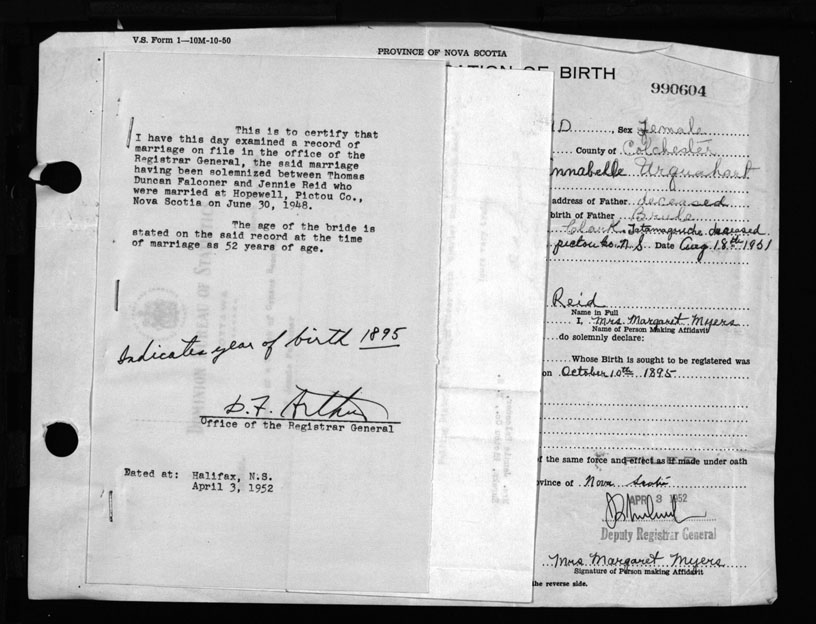 V.S. Form 1—10M-10-50
PROVINCE OF NOVA SCOTIA
OF BIRTH
990604
This is to certify that
I have this day examined a record of
marriage on file in the office of the
Registrar General, the said marriage
having been solemnized between Thomas
Duncan Falconer and Jennie Reid who
were married at Hopewell, Pictou Co.,
Nova Scotia on June 30, 1948.
The age of the bride is
stated on the said record at the time
of marriage as 52 years of age.
Indicates year of birth 1895
D. F. Arthur
Office of the Registrar General
Eated at: Halifax, N.S.
April 3, 1952
D, Sex Female
County of Colchester
nnabelle Urquhart
address of Father deceased
birth of Father
Clark Tatamagouche deceased
pictou co. N.S. Date Aug. 18th 1951
Reid
Name in Full
I, Mrs. Margaret Myers
Name of Person Making Affidavit
do solemnly declare:
Whose Birth is sought to be registered was
on October 10th 1895
of the same force and effect as if made under oath
ovince of Nova Scotia
APR 3 1952
Deputy Registrar General
Mrs Margaret Myers
Signature of Person making Affidavit
the reverse side.